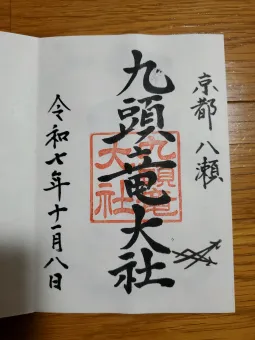 京都 八瀬
九頭竜大社
九頭竜大社
令和七年十一月八日